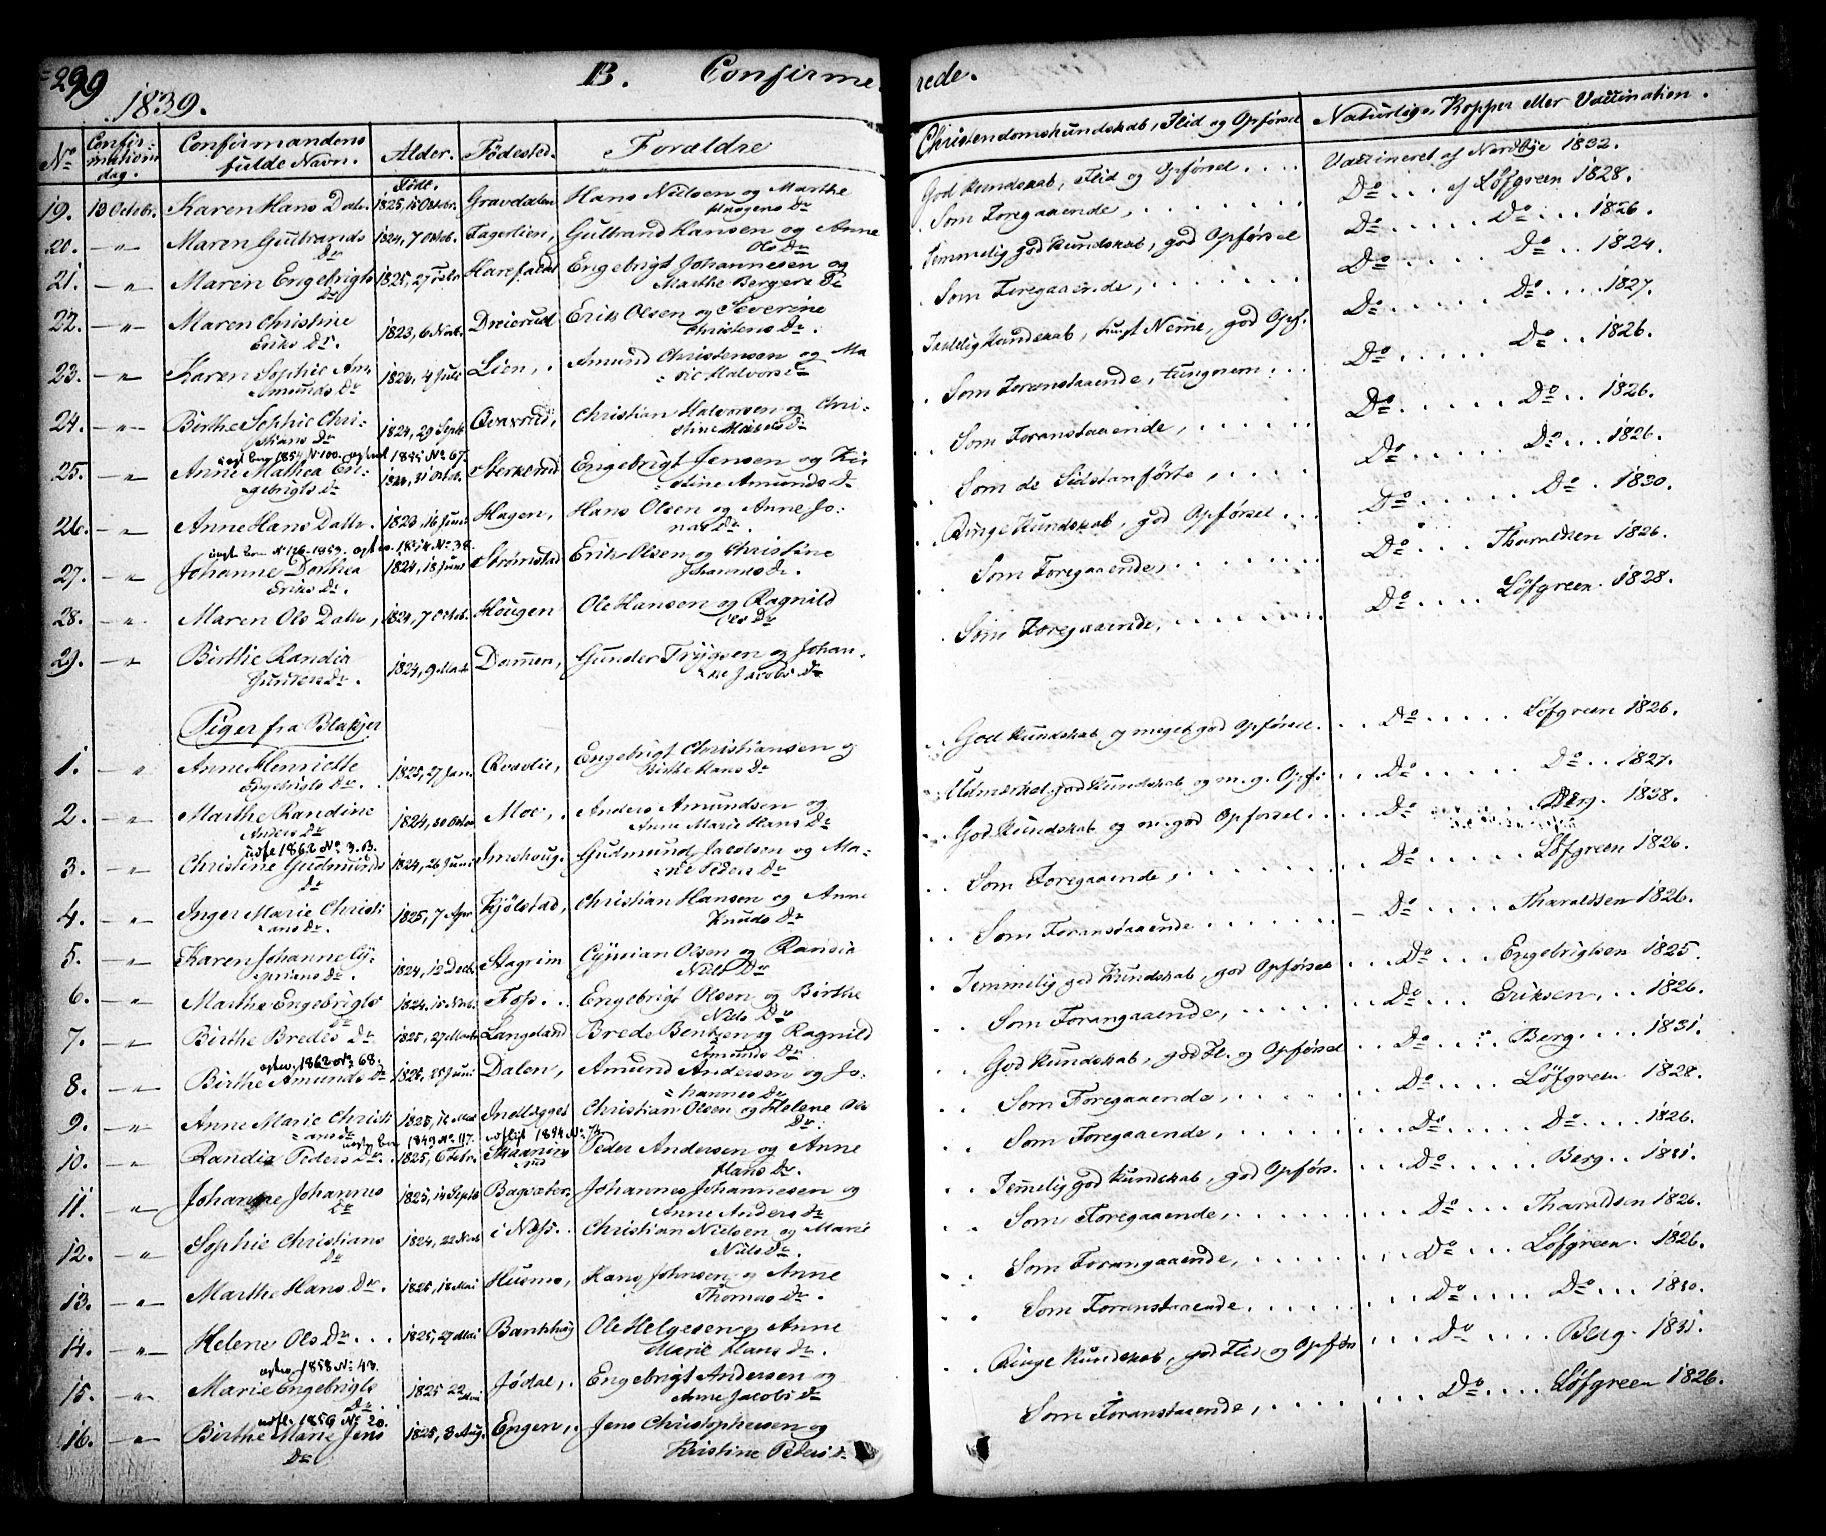 299
B. Confirmerede.
1839.
No Confirmations dag. Confirmandens fulde Navn. Alder. Fødested. Forældre Christendomskundskab, Flid og Opførsel Naturlige Kopper eller Vaccination.
født.
19. 13 Octobr. Karen Hans Datr. 1825, 15 Octbr. Gravdalen Hans Nielsen og Marthe Haagens Dr God Kundskab, Flid og Opførsel . . . . Vaccineret af Nordbye 1832.
20. — " — Maren Gulbrands Dr 1824, 7 Octob. Fagerlien, Gulbrand Hansen og Anne Ols Dr Som Foregaaende, . . . . . . . Do . . . af Løfgreen 1828.
21. — " — Maren Engebrigts Dr 1825, 27 Febr Harefaldet Engebrigt Johannesen og Marthe Bergers Dr Temmelig god Kundskab, god Opførsel Do . . . . . Do . . . . 1826.
22. — " — Maren Christine Eriks Dr. 1823, 6 Novb. Dreierud Erik Olsen og Severine Christens Dr. Som Foregaaende, . . . . . . Do . . . . . Do . . 1824.
23. — " — Karen Sophie Amunds Dr 1823, 4 Juli Lien, . Amund Christensen og Marie Halvors Dr Taalelig Kundskab, tungt Nemme, god Opf. Do . . . . . Do . . . . 1827.
24. — " — Birthe Sophie Christians Dr 1824, 29 Septb Qvaxrud, Christian Halvorsen og Christine Moses Dr Som Foranstaaende, tungnem . . . Do . . . . . Do . . . 1826.
25. — " — Anne Mathea Engebrigts Dr 1824, 31 Octob. Sterkerud Engebrigt Jensen og Kirstine Amunds Dr Som Foranstaaende, . . . . . . Do . . . . . Do . . . 1826.
26. — " — Anne Hans Dattr. 1823, 16 Juni Hagen, Hans Olsen og Anne Jonas Dr. Som de Sidstanførte, . . . . . Do . . . . . Do . . . 1826.
27. — " — Johanne Dorthea Eriks Dr. 1824, 18 Juni Strømstad Erik Olsen og Christine Johannes Dr. Ringe Kundskab, god Opførsel . . . Do . . . . . Do . . 1830.
28. — " — Maren Ols Dattr, 1824, 7 Octob. Hougen Ole Hansen og Ragnild Ols Dr Som Foregaaende, . . . . . . . Do . . . . Tharaldsen 1826.
29. — " — Birthe Randia Gunders Dr. 1824, 9 Marts Dammen, Gunder Trygsen og Johanne Jacobs Dr Som Foregaaende, . . . . . . . Do . . . . Løfgreen . 1828.
Piger fra Blakjer
1. — " — Anne Henriette Engebrigts Dr. 1825, 27 Jan. Qvavlie, Engebrigt Christiansen og Birthe Hans Dr God Kundskab og meget god Opførsel . . . Do . . . . . Løfgreen 1826.
2. — " — Marthe Randine Anders Dr 1824, 30 Octob Moe, . Anders Amundsen og Anne Marie Hans Dr Udmærket god Kundskab og m. g. Opf. . . . Do . . . . . Do . . . 1827.
3. — " — Christine Gudmunds Dr 1824, 26 Juni Imshoug. Gudmund Jacobsen og Marie Peders Dr God Kundskab og m. god Opførsel . . . . Do . . . . . Berg. 1838.
4. — " — Inger Marie Christians Dr. 1825, 7 Apr Kjølstad, Christian Hansen og Anne Knuds Dr Som Foregaaende, . . . . . . . Do . . . . . Løfgreen 1826.
5. — " — Karen Johanne Cyprians Dr. 1824, 12 Decb. Slagrim Cyprian Olsen og Randia Niels Dr Som Foranstaaende . . . . . . . Do . . . . . Tharaldsen 1826.
6. — " — Marthe Engebrigts Dr 1824, 15 Novb. Foss . . Engebrigt Olsen og Birthe Niels Dr Temmelig god Kundskab, god Opførsel . . . Do . . . . . Engebrigtsen 1825.
7. — " — Birthe Bredes Dr. 1825, 27 Marts Langeland Brede Bentsen og Ragnild Amunds Dr Som Forangaaende, . . . . . . . Do . . . . . Eriksen, . . 1826.
8. — " — Birthe Amunds Dr 1825, 25 Juni Dalen, Amund Andersen og Johannes Dr God Kundskab, god Fl. og Opførsel . . . Do . . . . Berg . . . . 1831.
9. — " — Anne Marie Christians Dr 1825, 12 Mai Indlægget Christian Olsen og Helene Ols Dr. Som Foregaaende, . . . . . . . Do . . . . Løfgreen 1828.
10. — " — Randia Peders Dr. 1825, 6 Febr. Peder Andersen og Anne Hans Dr. Som Foregaaende, . . . . . . . Do . . . . . Do . . . . 1826.
11. — " — Johanne Johannes Dr 1825, 14 Septb Bagsæter, Johannes Johannesen og Anne Anders Dr Temelig god Kundskab, god Opførs. . . . Do . . . . . Berg . . 1831.
12. — " — Sophie Christians Dr 1824, 22 Novb i Næss. . Christian Nielsen og Marie Niels Dr. Som Foregaaende, . . . . . . . Do . . . . . Tharaldsen 1826.
13. — " — Marthe Hans Dr. 1825, 18 Mai Husmo, Hans Johnsen og Anne Thomas Dr. Som Forangaaende, . . . . . . . Do . . . . . Løfgreen . 1826.
14. — " — Helene Ols Dr . . . 1825, 27 Mai Bankhøg Ole Helgesen og Anne Marie Hans Dr. Som Foranstaaende . . . . . . . Do . . . . . Do . . . 1830.
15. — " — Marie Engebrigts Dr. 1825 22 Mai Jødal, . Engebrigt Andersen og Anne Jacobs Dr Ringe Kundskab, god Flid og Opførs . . . Do . . . . . Berg . 1831.
16. — " — Birthe Marie Jens Dr 1825, 3 Aug. Engen, . Jens Christophersen og Kristine Peters Dr Som Foranstaaende, . . . . . . . Do . . . . Løfgreen 1826.